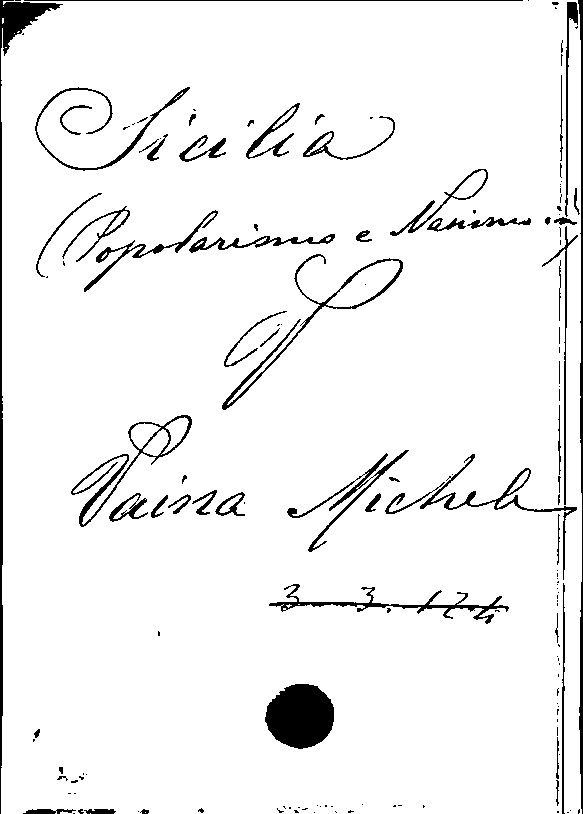 Sicilia
(Popolarismo e Nasismo in)
V
Vaina Michele
3. 3. 124